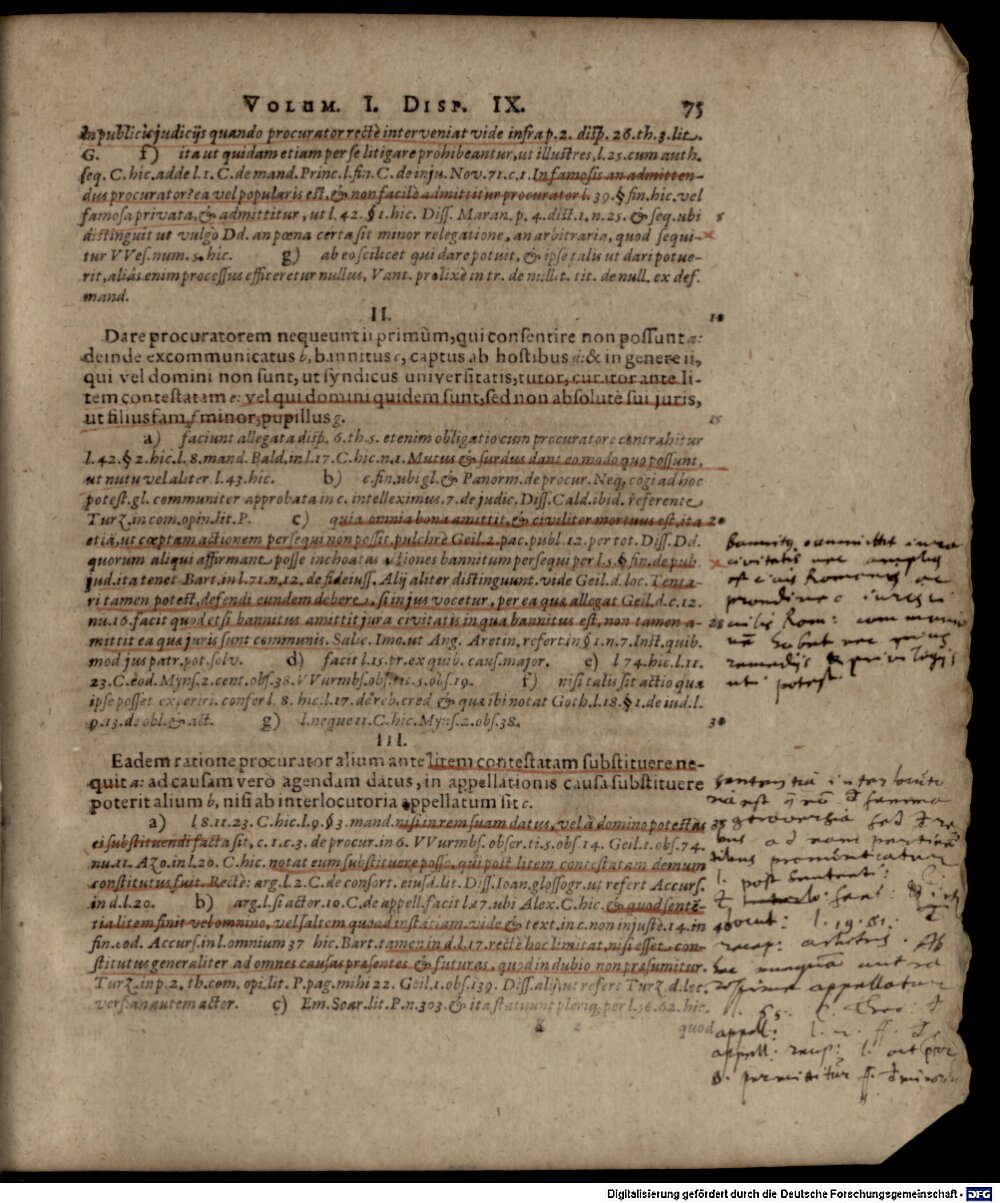 VOLUM. I. DISP. IX. 75
In publicis judicijs quando procurator rectè interveniat vide infra p. 2. disp. 26. th. 3. lit.
G. f) ita ut quidam etiam per se litigare prohibeantur, ut illustres, l. 25. cum auth.
seq. C. hic. adde l. 1. C. de mand. Princ. l. fin. C. de inju. Nov. 71. c. 1. In famosis an admitten-
dus procurator? ea vel popularis est, & non facilè admittitur procurator l. 39. § fin. hic. vel
famosa privata, & admittitur, ut l. 42. § 1. hic. Diss. Maran. p. 4. dist. 1. n. 25. & seq. ubi 5
distinguit ut vulgò Dd. an pœna certa sit minor relegatione, an arbitraria, quod sequi-
tur VVes. num. 5. hic. g) ab eo scilicet qui dare potuit, & ipse talis ut dari potue-
rit, aliàs enim processus efficeretur nullus, Vant. prolixè in tr. de null. t. tit. de null. ex def.
mand.
II. 10
Dare procuratorem nequeunt ii primùm, qui consentire non possunt a:
deinde excommunicatus b, bannitus c, captus ab hostibus d: & in genere ii,
qui vel domini non sunt, ut syndicus universitatis, tutor, curator ante li-
tem contestatam e: vel qui domini quidem sunt, sed non absolutè sui juris,
ut filiusfam. f minor, pupillus g. 15
a) faciunt allegata disp. 6. th. 5. etenim obligatio cum procuratore contrahitur
l. 42. § 2. hic. l. 8. mand. Bald. in l. 17. C. hic. n. 1. Mutus & surdus dant eo modo quo possunt,
ut nutu vel aliter l. 43. hic. b) c. fin. ubi gl. & Panorm. de procur. Neq; cogi ad hoc
potest. gl. communiter approbata in c. intelleximus. 7. de judic. Diss. Cald. ibid. referente
Turz. in com. opin. lit. P. c) quia omnia bona amittit, & civiliter mortuus est, ita 20
etiã, ut cœptam actionem persequi non possit. pulchrè Geil. 2. pac. publ. 12. per tot. Diss. Dd.
quorum aliqui affirmant posse inchoatas actiones bannitum persequi per l. 5. § fin. de pub.
jud. ita tenet Bart. in l. 71. n. 12. de fideiuss. Alij aliter distinguunt. vide Geil. d. loc. Tenta-
ri tamen potest, defendi eundem debere, si in jus vocetur, per ea quæ allegat Geil. d. c. 12.
nu. 16. facit quod etsi bannitus amittit jura civitatis in qua bannitus est, non tamen a- 25
mittit ea quæ juris sunt communis. Salic. Imo. ut Ang. Aretin. refert in § 1. n. 7. Inst. quib.
mod jus patr. pot. solv. d) facit l. 15. pr. ex quib. caus. major. e) l 74. hic. l. 11.
23. C. eod. Myns. 2. cent. obs. 38. VVurmbs. obs. tit. 5. obs. 19. f) nisi talis sit actio qua
ipse posset experiri. confer l. 8. hic. l. 17. de reb. cred & quæ ibi notat Goth. l. 18. § 1. de iud. l.
9. 13. de obl. & act. g) l. neque 11. C. hic. Myns. 2. obs. 38. 30
III.
Eadem ratione procurator alium ante litem contestatam substituere ne-
quit a: ad causam verò agendam datus, in appellationis causa substituere
poterit alium b, nisi ab interlocutoria appellatum sit c.
a) l 8. 11. 23. C. hic. l. 9. § 3. mand. nisi in rem suam datus, vel à domino potestas 35
ei substituendi facta sit, c. 1. c. 3. de procur. in 6. VVurmbs. obser. ti. 5. obs. 14. Geil. 1. obs. 74.
nu. 11. Azo. in l. 20. C. hic. notat eum substituere posse, qui post litem contestatam demum
constitutus fuit. Rectè: arg. l. 2. C. de consort. eiusd. lit. Diss. Ioan. glossogr. ut refert Accurs.
in d. l. 20. b) arg. l. si actor. 10. C. de appell. facit l. 17. ubi Alex. C. hic. & quod sentẽ-
tia litem finit vel omnino, vel saltem quoad instãtiam. vide & text. in c. non injustè. 14. in 40
fin. eod. Accurs. in l. omnium 37 hic. Bart. tamen in d. l. 17. rectè hoc limitat, nisi esset con-
stitutus generaliter ad omnes causas præsentes & futuras, quod in dubio non præsumitur.
Turz. in p. 2. th. com. opi. lit. P. pag. mihi 22. Geil. 1. obs. 139. Diss. alij, ut refert Turz. d. loc.
vers. an autem actor. c) Em. Soar. lit. P. n. 303. & ita statuunt pleriq; per l. 16. 62. hic.
quod
Digitalisierung gefördert durch die Deutsche Forschungsgemeinschaft - DFG